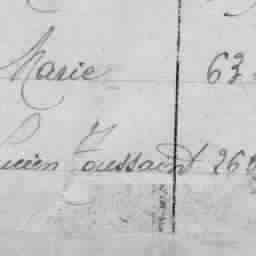 Marie 63
Lucien Toussaint 26